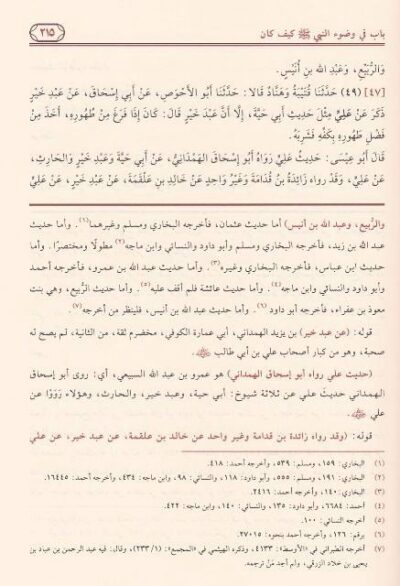 باب في وضوء النبي ﷺ كيف كان
٢١٥
وَالرُّبَيِّعِ، وَعَبْدِ الله بنِ أُنَيْسٍ.
[٤٧] (٤٩) حَدَّثَنَا قُتَيْبَةُ وَهَنَّادٌ قَالَا: حَدَّثَنَا أَبُو الأَحْوَصِ، عَنْ أَبِي إِسْحَاقَ، عَنْ عَبْدِ خَيْرٍ
ذَكَرَ عَنْ عَلِيٍّ مِثْلَ حَدِيثِ أَبِي حَيَّةَ، إِلَّا أَنَّ عَبْدَ خَيْرٍ قَالَ: كَانَ إِذَا فَرَغَ مِنْ طُهُورِهِ، أَخَذَ مِنْ
فَضْلِ طَهُورِهِ بِكَفِّهِ فَشَرِبَهُ.
قَالَ أَبُو عِيسَى: حَدِيثُ عَلِيٍّ رَوَاهُ أَبُو إِسْحَاقَ الهَمْدَانِيُّ، عَنْ أَبِي حَيَّةَ وَعَبْدِ خَيْرٍ وَالحَارِثِ،
عَنْ عَلِيٍّ، وَقَدْ رواه زَائِدَةُ بنُ قُدَامَةَ وَغَيْرُ وَاحِدٍ عَنْ خَالِدِ بنِ عَلْقَمَةَ، عَنْ عَبْدِ خَيْرٍ، عَنْ عَلِيٍّ
والرُّبيِّع، وعبد الله بن أنيس) أما حديث عثمان، فأخرجه البخاري ومسلم وغيرهما(١). وأما حديث
عبد الله بن زيد، فأخرجه البخاري ومسلم وأبو داود والنسائي وابن ماجه(٢) مطولًا ومختصرًا. وأما
حديث ابن عباس، فأخرجه البخاري وغيره(٣). وأما حديث عبد الله بن عمرو، فأخرجه أحمد
وأبو داود والنسائي وابن ماجه(٤). وأما حديث عائشة فلم أقف عليه(٥). وأما حديث الرُّبيع، وهي بنت
معوذ بن عفراء، فأخرجه أبو داود(٦). وأما حديث عبد الله بن أنيس، فلينظر من أخرجه(٧).
قوله: (عن عبد خير) بن يزيد الهمداني، أبي عمارة الكوفي، مخضرم ثقة، من الثانية، لم يصح له
صحبة، وهو من كبار أصحاب علي بن أبي طالب
(حديث علي رواه أبو إسحاق الهمداني) هو عمرو بن عبد الله السبيعي، أي: روى أبو إسحاق
الهمداني حديث علي عن ثلاثة شيوخ: أبي حية، وعبد خير، والحارث، وهؤلاء رَوَوْا عن
علي
قوله: (وقد رواه زائدة بن قدامة وغير واحد عن خالد بن علقمة، عن عبد خير، عن علي
(١) البخاري: ١٥٩، ومسلم: ٥٣٩، وأخرجه أحمد: ٤١٨.
(٢) البخاري: ١٩١، ومسلم: ٥٥٥، وأبو داود: ١١٨، والنسائي: ٩٨، وابن ماجه: ٤٣٤، وأخرجه أحمد: ١٦٤٤٥.
(٣) البخاري: ١٤٠، وأخرجه أحمد: ٢٤١٦.
(٤) أحمد: ٦٦٨٤، وأبو داود: ١٣٥، والنسائي: ١٤٠، وابن ماجه: ٤٢٢.
(٥) أخرجه النسائي: ١٠٠.
(٦) برقم: ١٢٦، وأخرجه أحمد بنحوه: ٢٧٠١٥.
(٧) أخرجه الطبراني في «الأوسط»: ٤١٣٣، وذكره الهيثمي في «المجمع»: (١/ ٢٣٣)، وقال: فيه عبد الرحمن بن عباد بن
يحيى بن خلاد الزرقي، ولم أجد مَنْ ترجمه.